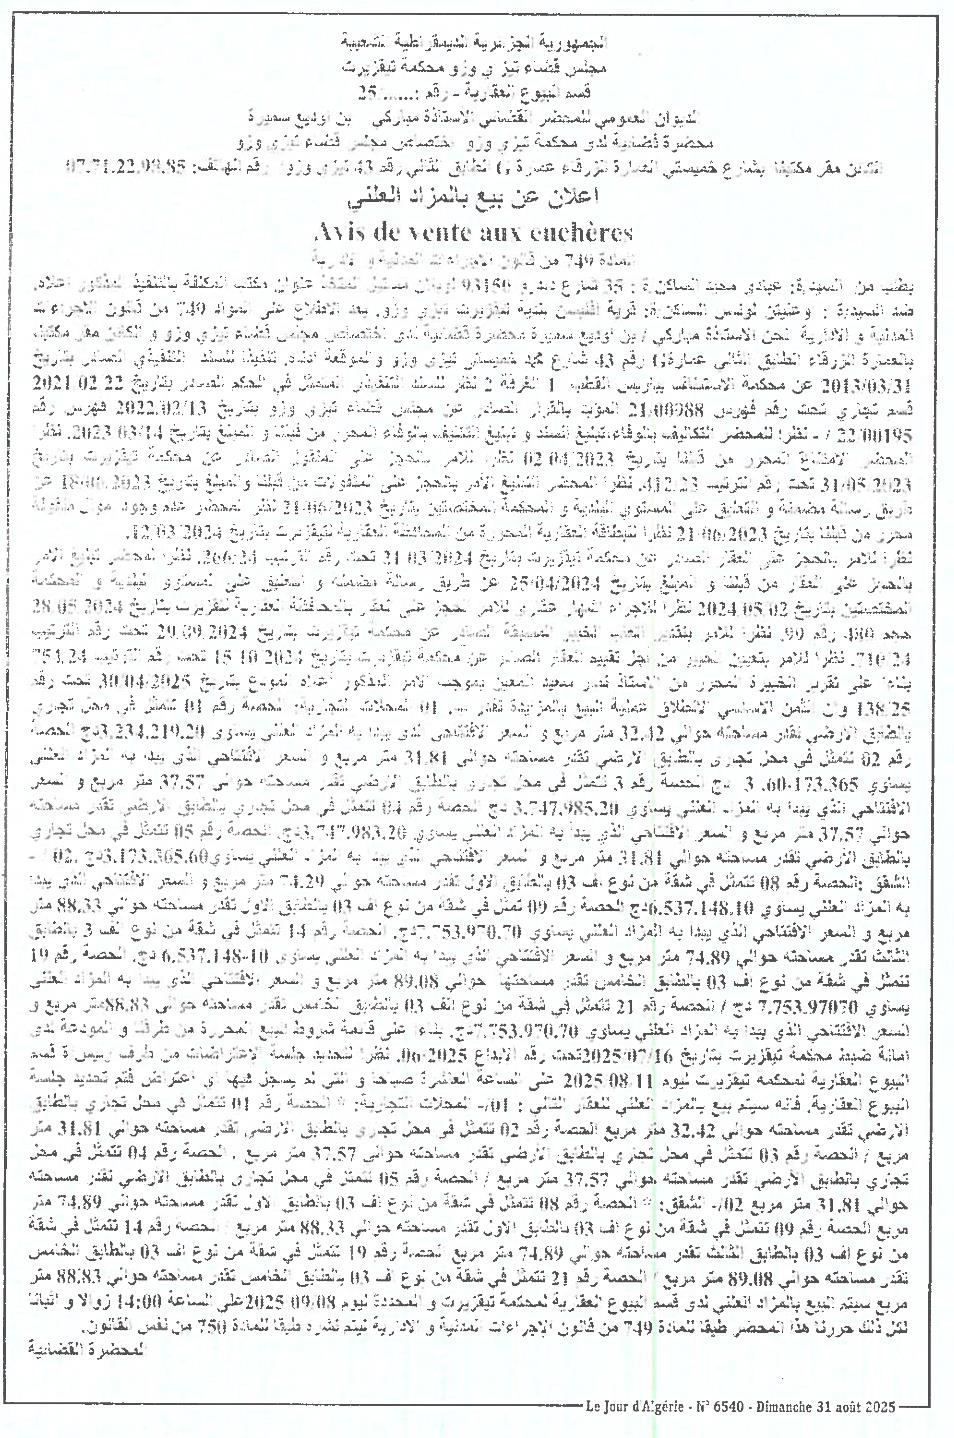 الجمهورية الجزائرية الديمقراطية الشعبية
مجلس قضاء تيزي وزو محكمة تيقزيرت
قسم البيوع العقارية - رقم :......25
الديوان العمومي للمحضر القضائي الاستاذة مباركي بن اوديع سميرة
محضرة قضائية لدى محكمة تيزي وزو اختصاص مجلس قضاء تيزي وزو
الكائن مقر مكتبنا بشارع خميستي العمارة الزرقاء عمارة الطابق الثاني رقم 43 تيزي وزو رقم الهاتف: 07.71.22.98.85
اعلان عن بيع بالمزاد العلني
Avis de vente aux enchères
المادة 749 من قانون الاجراءات المدنية و الادارية
بطلب من السيدة: عبادي محند الساكن: 35 شارع 93150 عنوان مكتب المكلفة بالتنفيذ المذكور اعلاه.
ضد السيدة : تونس الساكن: قرية بلدية تيقزيرت تيزي وزو. بعد الاطلاع على المواد 749 من قانون الاجراءات
المدنية و الادارية نحن الاستاذة مباركي / بن اوديع سميرة محضرة قضائية لدى اختصاص مجلس قضاء تيزي وزو و الكائن مقر مكتبنا
بالعمارة الزرقاء الطابق الثاني عمارة رقم 43 شارع خميستي تيزي وزو والموقعة ادناه. تنفيذا للسند التنفيذي الصادر بتاريخ
2013/03/31 عن محكمة الاستئناف بباريس القطب 1 الغرفة 2 نظرا للسند التنفيذي المتمثل في الحكم الصادر بتاريخ 22 02 2021
قسم تجاري تحت رقم فهرس 21/00988 المؤيد بالقرار الصادر عن مجلس قضاء تيزي وزو بتاريخ 2022/02/13 فهرس رقم
22/00195 / - نظرا لمحضر التكليف بالوفاء. تبليغ السند و تبليغ التكليف بالوفاء المحرر من قبلنا و المبلغ بتاريخ 2023/03/14. نظرا
لمحضر الامتناع المحرر من قبلنا بتاريخ 02/04/2023 نظرا للامر بالحجز على المنقول الصادر عن محكمة تيقزيرت بتاريخ
31/05/2023 تحت رقم الترتيب 412/23. نظرا لمحضر التبليغ الامر بالحجز على المنقولات من قبلنا والمبلغ بتاريخ 18/06/2023 عن
طريق رسالة مضمنة و التعليق على المستوى البلدية و المحكمة المختصتين بتاريخ 21/06/2023 نظرا لمحضر عدم وجود اموال منقولة
محرر من قبلنا بتاريخ 21/06/2023 نظرا للبطاقة العقارية المحررة من المحافظة العقارية لتيقزيرت بتاريخ 12/03/2024.
نظرا للامر بالحجز على العقار الصادر عن محكمة تيقزيرت بتاريخ 21/03/2024 تحت رقم الترتيب 266/24. نظرا لمحضر تبليغ الامر
بالحجز على العقار من قبلنا و المبلغ بتاريخ 25/04/2024 عن طريق رسالة مضمنة و التعليق على المستوى البلدية و المحكمة
المختصتين بتاريخ 02/05/2024 نظرا للاجراء الشهر عقاري للامر الحجز على العقار بالمحافظة العقارية لتيقزيرت بتاريخ 28/05/2024
حجم 480 رقم 90. نظرا للامر الصادر عن محكمة تيقزيرت بتاريخ 29/09/2024 تحت رقم الترتيب
710/24. نظرا للامر بتعيين الخبير من اجل تقييم العقار الصادر عن محكمة تيقزيرت بتاريخ 15/10/2024 تحت رقم الترتيب 754/24
بناءا على تقرير الخبرة المحرر من الاستاذ سعيد المعين بموجب الامر المذكور اعلاه المودع بتاريخ 30/04/2025 تحت رقم
138/25 وان الثمن الاساسي لانطلاق عملية البيع بالمزايدة تقدر بـ: 01 المحلات التجارية: الحصة رقم 01 تتمثل في محل تجاري
بالطابق الارضي تقدر مساحته حوالي 32.42 متر مربع و السعر الافتتاحي الذي يبدا به المزاد العلني يساوي 3.234.219.20دج الحصة
رقم 02 تتمثل في محل تجاري بالطابق الارضي تقدر مساحته حوالي 31.81 متر مربع و السعر الافتتاحي الذي يبدا به المزاد العلني
يساوي 3 .60-173.365 دج الحصة رقم 3 تتمثل في محل تجاري بالطابق الارضي تقدر مساحته حوالي 37.57 متر مربع و السعر
الافتتاحي الذي يبدا به المزاد العلني يساوي 3.747.985.20 دج الحصة رقم 04 تتمثل في محل تجاري بالطابق الارضي تقدر مساحته
حوالي 37.57 متر مربع و السعر الافتتاحي الذي يبدا به المزاد العلني يساوي 3.747.983.20دج. الحصة رقم 05 تتمثل في محل تجاري
بالطابق الارضي تقدر مساحته حوالي 31.81 متر مربع و السعر الافتتاحي الذي يبدا به المزاد العلني يساوي3.173.365.60دج .02 / -
الشقق :الحصة رقم 08 تتمثل في شقة من نوع اف 03 بالطابق الاول تقدر مساحته حوالي 74.29 متر مربع و السعر الافتتاحي الذي يبدا
به المزاد العلني يساوي 6.537.148.10دج الحصة رقم 09 تتمثل في شقة من نوع اف 03 بالطابق الاول تقدر مساحته حوالي 88.33 متر
مربع و السعر الافتتاحي الذي يبدا به المزاد العلني يساوي 7.753.970.70دج. الحصة رقم 14 تتمثل في شقة من نوع اف 3 بالطابق
الثالث تقدر مساحته حوالي 74.89 متر مربع و السعر الافتتاحي الذي يبدا به المزاد العلني يساوي 6.537.148-10 دج. الحصة رقم 19
تتمثل في شقة من نوع اف 03 بالطابق الخامس تقدر مساحتها حوالي 89.08 متر مربع و السعر الافتتاحي الذي يبدا به المزاد العلني
يساوي 7.753.97070 دج / الحصة رقم 21 تتمثل في شقة من نوع اف 03 بالطابق الخامس تقدر مساحته حوالي 88.83متر مربع و
السعر الافتتاحي الذي يبدا به المزاد العلني يساوي 7.753.970.70دج. بناءا على قائمة شروط البيع المحررة من طرفنا و المودعة لدى
امانة ضبط محكمة تيقزيرت بتاريخ 2025/07/16تحت رقم الايداع 06/2025. نظرا لتحديد جلسة الاعتراضات من طرف رئيس قسم
البيوع العقارية لمحكمة تيقزيرت ليوم 2025/08/11 على الساعة العاشرة صباحا و التي لم يسجل فيها اي اعتراض فتم تحديد جلسة
البيوع العقارية. فانه سيتم بيع بالمزاد العلني للعقار التالي : 01/- المحلات التجارية: * الحصة رقم 01 تتمثل في محل تجاري بالطابق
الارضي تقدر مساحته حوالي 32.42 متر مربع الحصة رقم 02 تتمثل في محل تجاري بالطابق الارضي تقدر مساحته حوالي 31.81 متر
مربع / الحصة رقم 03 تتمثل في محل تجاري بالطابق الارضي تقدر مساحته حوالي 37.57 متر مربع . الحصة رقم 04 تتمثل في محل
تجاري بالطابق الارضي تقدر مساحته حوالي 37.57 متر مربع / الحصة رقم 05 تتمثل في محل تجاري بالطابق الارضي تقدر مساحته
حوالي 31.81 متر مربع 02/- الشقق: * الحصة رقم 08 تتمثل في شقة من نوع اف 03 بالطابق الاول تقدر مساحته حوالي 74.89 متر
مربع الحصة رقم 09 تتمثل في شقة من نوع اف 03 بالطابق الاول تقدر مساحته حوالي 88.33 متر مربع / الحصة رقم 14 تتمثل في شقة
من نوع اف 03 بالطابق الثالث تقدر مساحته حوالي 74.89 متر مربع الحصة رقم 19 تتمثل في شقة من نوع اف 03 بالطابق الخامس
تقدر مساحته حوالي 89.08 متر مربع / الحصة رقم 21 تتمثل في شقة من نوع اف 03 بالطابق الخامس تقدر مساحته حوالي 88.83 متر
مربع سيتم البيع بالمزاد العلني لدى قسم البيوع العقارية لمحكمة تيقزيرت و المحددة ليوم 2025/09/08على الساعة 14:00 زوالا و اثباتا
لكل ذلك حررنا هذا المحضر طبقا للمادة 749 من قانون الاجراءات المدنية و الادارية ليتم نشره طبقا للمادة 750 من نفس القانون.
المحضرة القضائية
Le Jour d'Algérie - N° 6540 - Dimanche 31 août 2025